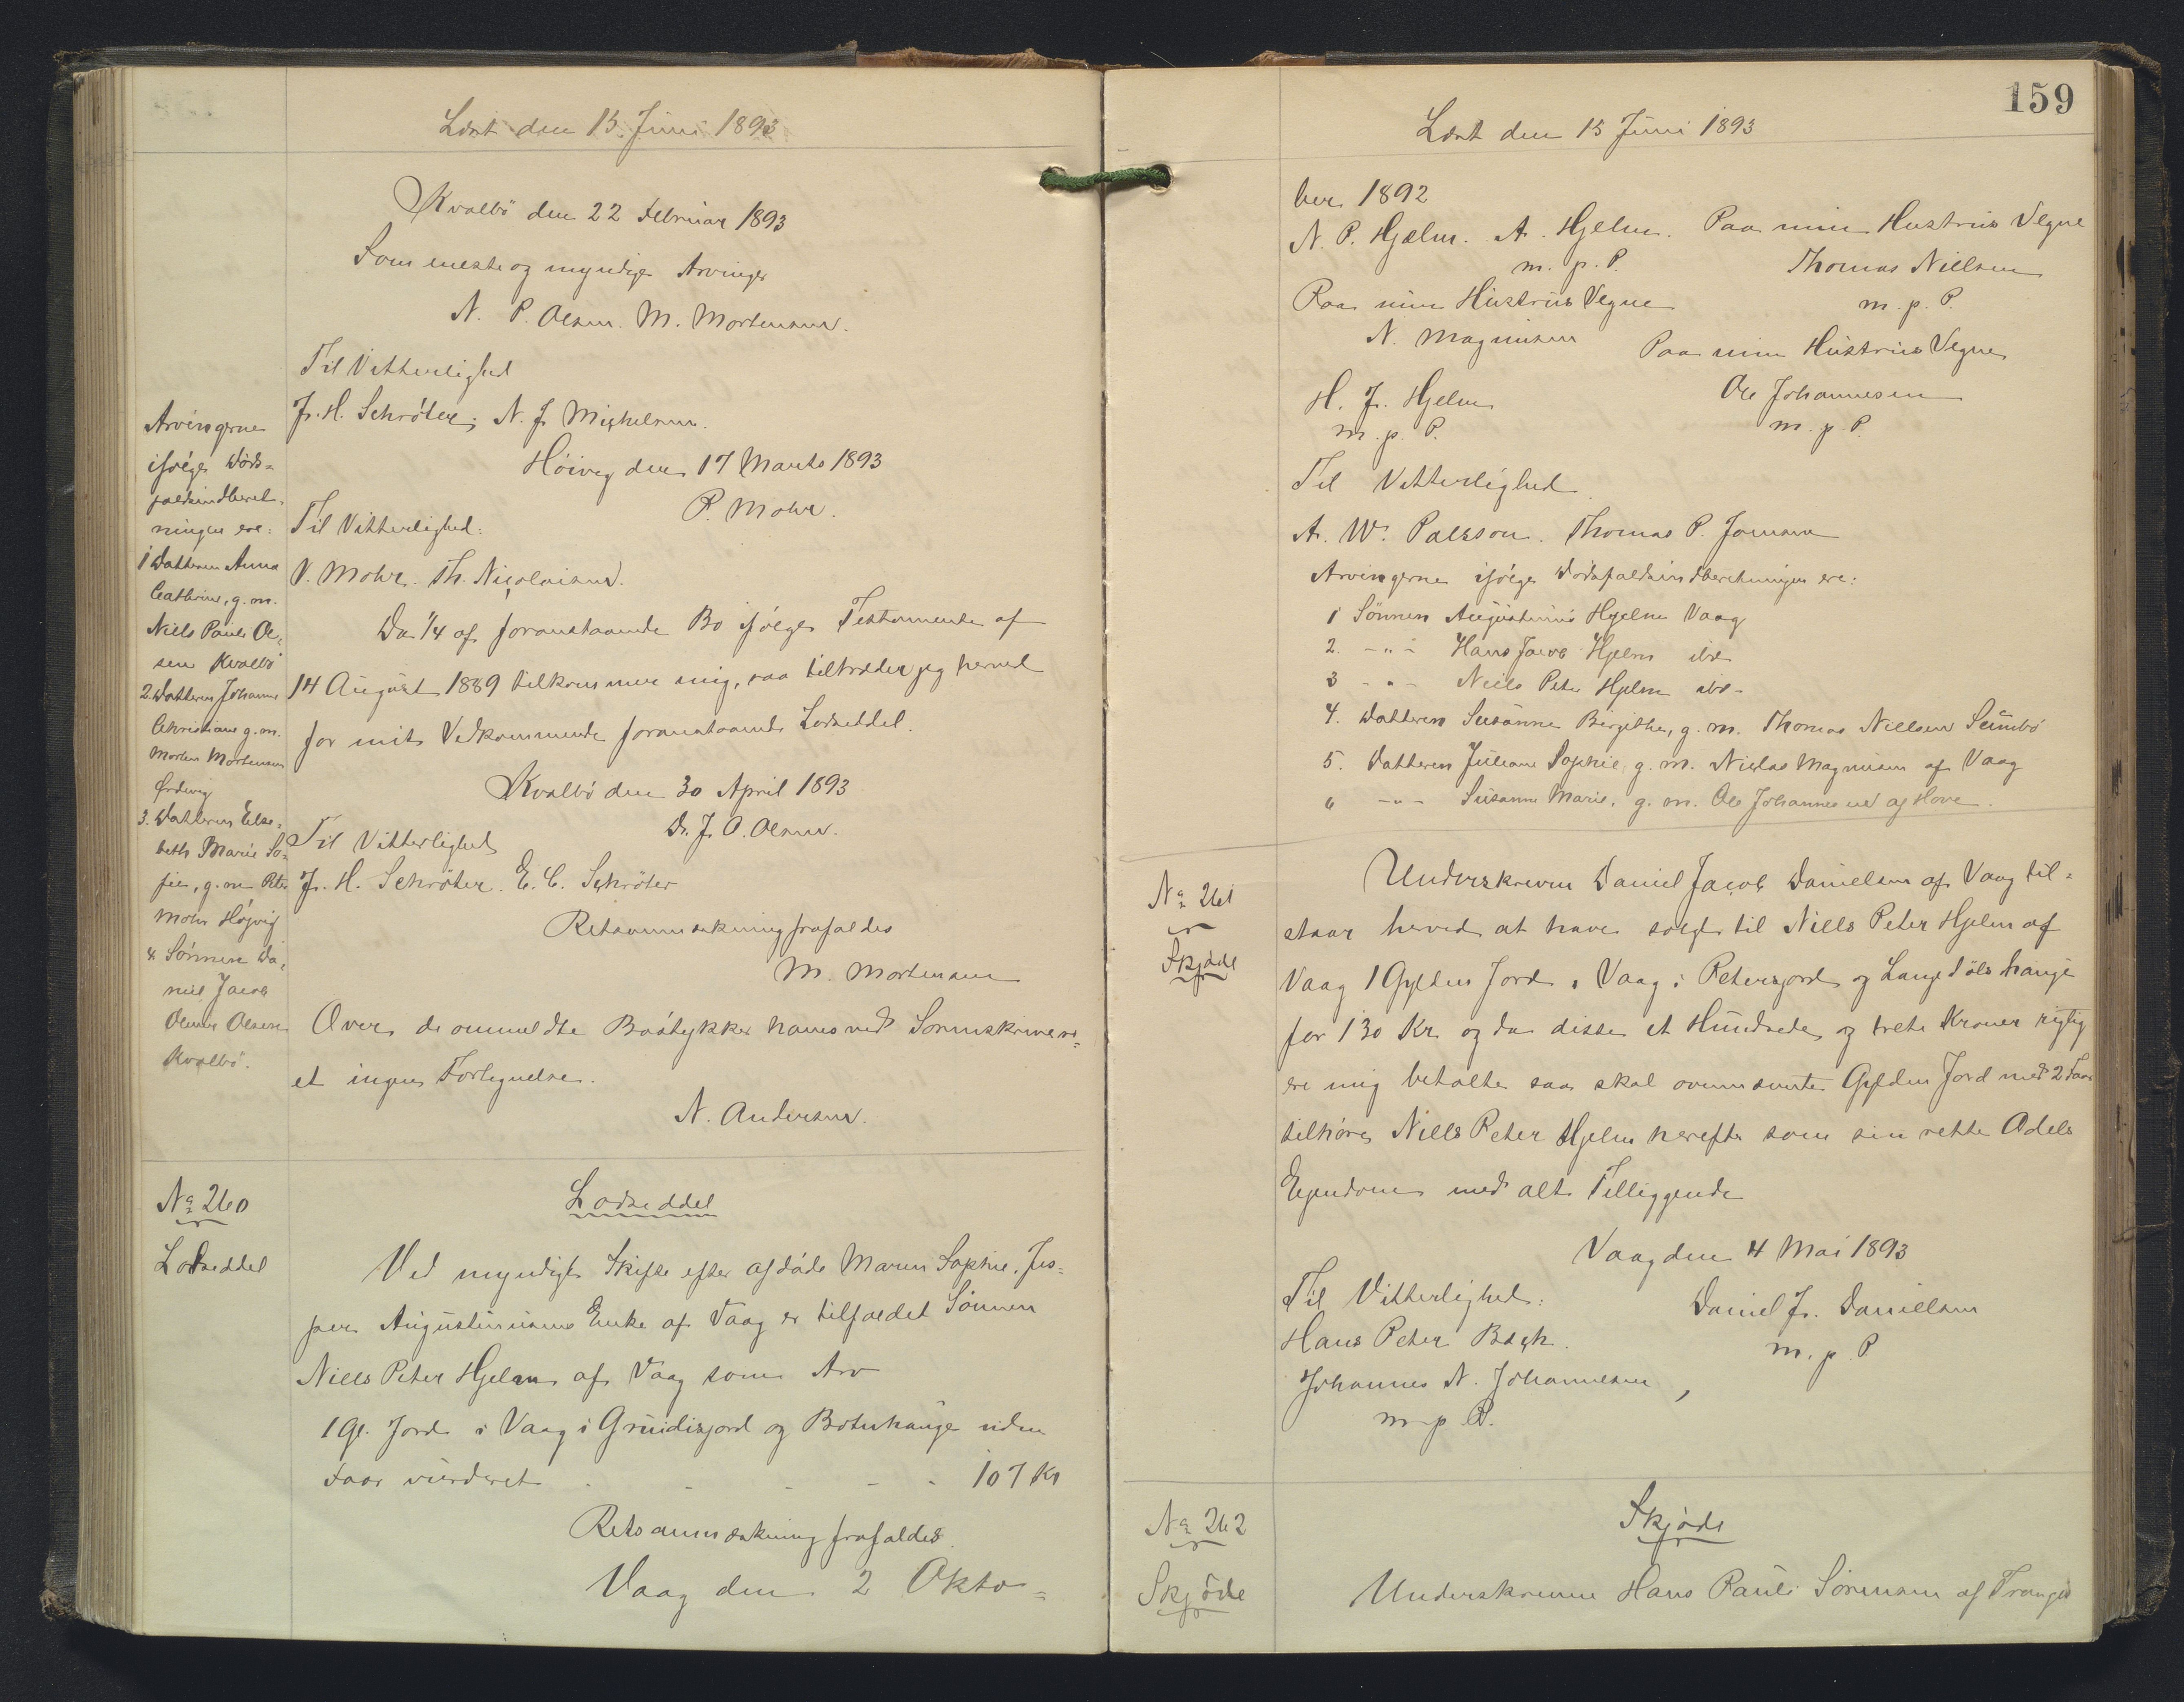 Læst den 15. Juni 1893
Kvalbö den 22 Februar 1893
Som eneste og myndige Arvinger
N. P. Olsen. M. Mortensen.
Til Vitterlighed
J. H. Schröter; N. J. Michelsen.
Höivig den 17 Marts 1893
P. Mohr.
Til Vitterlighed:
V. Mohr. Th. Nicolaisen.
Da 1/4 af foranstaaende Bo ifölge Testamente af
14 August 1889 tilkommer mig, saa tiltræder jeg herved
for mit Vedkommende foranstaaende Lodseddel.
Kvalbö den 30 April 1893
D. J. O. Olsen.
Til Vitterlighed
J. H. Schröter. E. C. Schröter
Retsanmærkning frafaldes
M. Mortensen
Over de ommeldte Bostykker haves ved Sorenskriveri=
et ingen Fortegnelse.
N. Andersen.
Arvingerne
ifölge Döds=
faldsindberet=
ningen ere:
1 Datteren Anna
Cathrine, g. m.
Niels Pauli Ol=
sen Kvalbö
2. Datteren Johanne
Christiane g. m.
Morten Mortensen
Ördevig
3. Datteren Else=
beth Marie So=
fie, g. m Peter
Mohr Höjvig
4 Sönnen Da=
niel Jacob
Olsen
Kvalbö.
No 260
Lodseddel
Lodseddel
Ved myndigt Skifte efter afdöde Maren Sophie, Jes=
per Augustinusens Enke af Vaag er tilfaldet Sönnen
Niels Peter Hjelm af Vaag som Arv
1 Gl. Jord i Vaag i Gruidisjord og Botnhauge uden
Faar vurderet - - - - 107 Kr
Retsanmærkning frafaldes.
Vaag den 2 Okto=
159
Læst den 15 Juni 1893
ber 1892
N. P. Hjelm. A. Hjelm. Paa min Hustrus Vegne
m. p. P. Thomas Nielsen
Paa min Hustrus Vegne m. p. P.
N. Magnusen Paa min Hustrus Vegne
H. J. Hjelm Ole Johannesen
m. p. P. m. p. P.
Til Vitterlighed
A. W. Palsson. Thomas P. Joensen
Arvingerne ifölge Dödsfaldsindberetningen ere:
1 Sönnen Augustinus Hjelm Vaag
2. -"- Hans Jacob Hjelm ibd
3 -"- Niels Peter Hjelm ibd-
4. Datteren Susanne Bergithe, g. m. Thomas Nielsen Sumbö
5. Datteren Juliane Sophie, g. m. Niclas Magnusen af Vaag
6 -"- Susanne Marie, g. m. Ole Johannesen af Hove.
No 261
Skjöde
Underskreven Daniel Jacob Danielsen af Vaag til=
staar herved at have solgt til Niels Peter Hjelm af
Vaag 1 Gylden Jord i Vaag i Petersjord og Langdölshauge
for 130 Kr. og da disse et Hundrede og treti Kroner rigtig
ere mig betalte saa skal ovennævnte Gylden Jord med 2 Faar
tilhöre Niels Peter Hjelm herefter som sin rette Odels
Ejendom med alt Tilliggende
Vaag den 4 Mai 1893
Til Vitterlighed: Daniel J. Danielsen
Hans Peter Bech. m. p. P
Johannes N. Johannesen,
m. p. P.
No 262
Skjöde
Skjöde
Underskrevne Hans Pauli Sörensen af Frangis